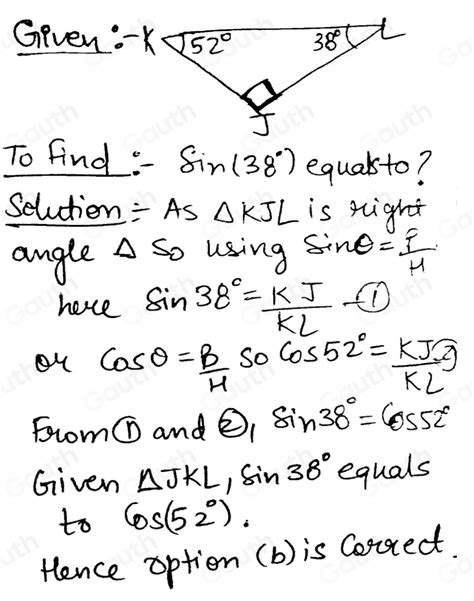 Given :- K 52° 38° L
J
To find :- Sin(38°) equals to ?
Solution :- As △KJL is right
angle △ So using Sinθ = P/H
here Sin 38° = KJ/KL -①
or Cosθ = B/H So Cos52° = KJ/KL -②
From ① and ②, Sin38° = Cos52°
Given △JKL, Sin 38° equals
to Cos(52°).
Hence option (b) is Correct.